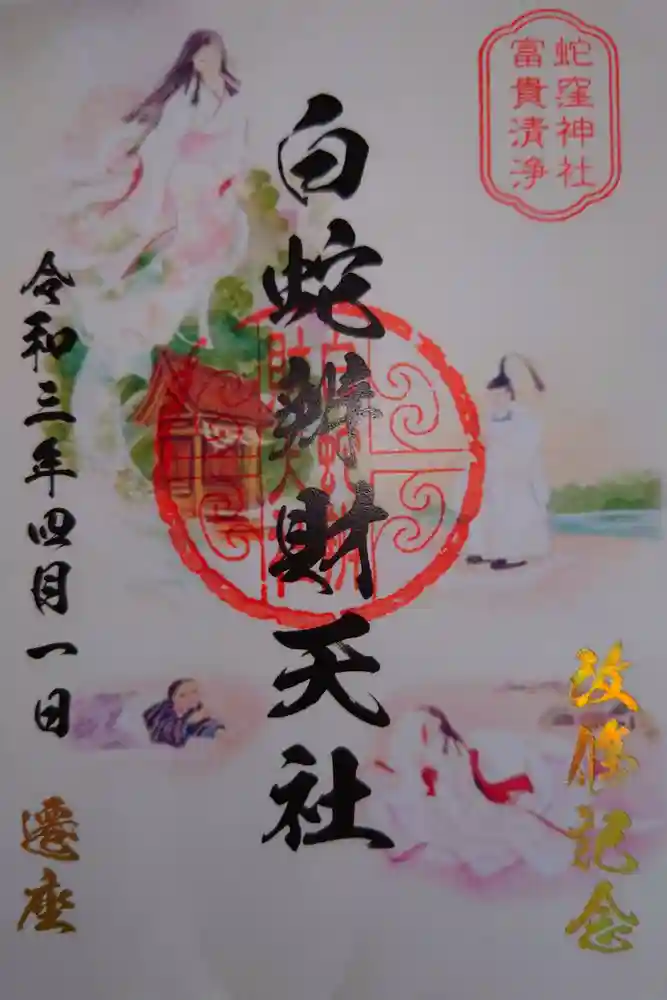 蛇窪神社
富貴清淨
改脩記念
白蛇辨財天社
令和三年四月一日
遷座